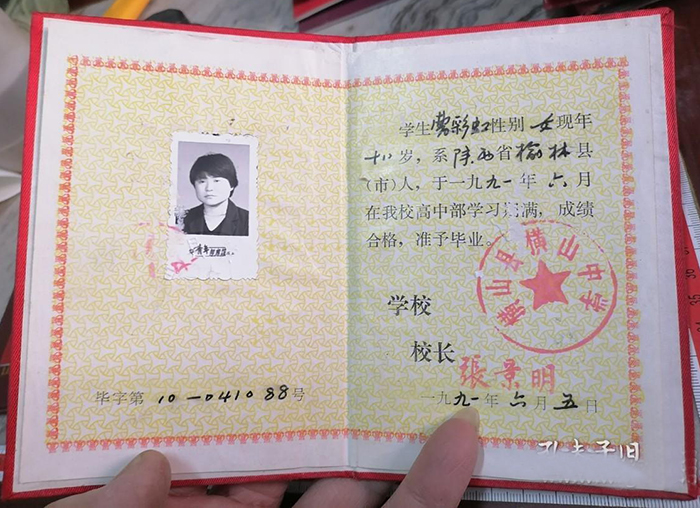 毕字第 10-041088号
学生曹彩虹性别 女现年
十八岁，系陕西省榆林县
（市）人，于一九九一年 六月
在我校高中部学习期满，成绩
合格，准予毕业。
横山县横山中学
学校
校长
張景明
一九九一年 六月五日